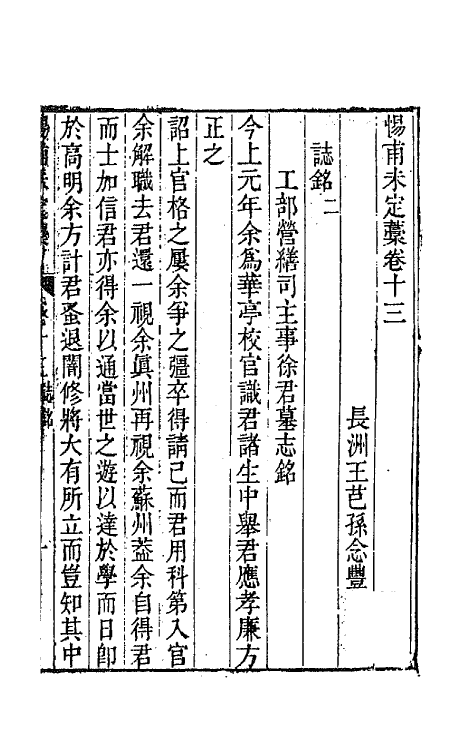 惕甫未定藁卷十三
長洲王芑孫念豐
誌銘二
工部營繕司主事徐君墓志銘
今上元年余爲華亭校官識君諸生中舉君應孝廉方
正之
詔上官格之屢余爭之彊卒得請已而君用科第入官
余解職去君還一視余眞州再視余蘇州葢余自得君
而士加信君亦得余以通當世之遊以達於學而日卽
於高明余方計君蚤退闇修將大有所立而豈知其中
誌銘
一